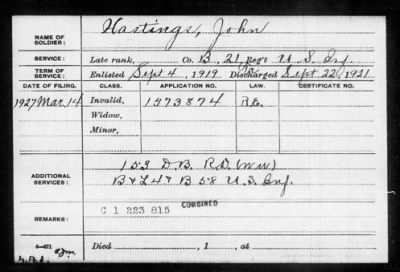 Hastings, John
NAME OF SOLDIER:
SERVICE: Late rank, Co. B, 21, Reg't U S Inf.
TERM OF SERVICE: Enlisted Sept 4, 1919 Discharged Sept 22, 1921
DATE OF FILING. CLASS. APPLICATION NO. LAW. CERTIFICATE NO.
1927 Mar. 14 Invalid, 1573874 R.E.
Widow,
Minor,
ADDITIONAL SERVICES: 153 D.B. R.D. (WW)
B & L 4 & B 58 U.S. Inf.
C 1 223 815 COMBINED
REMARKS:
Died , 1 , at